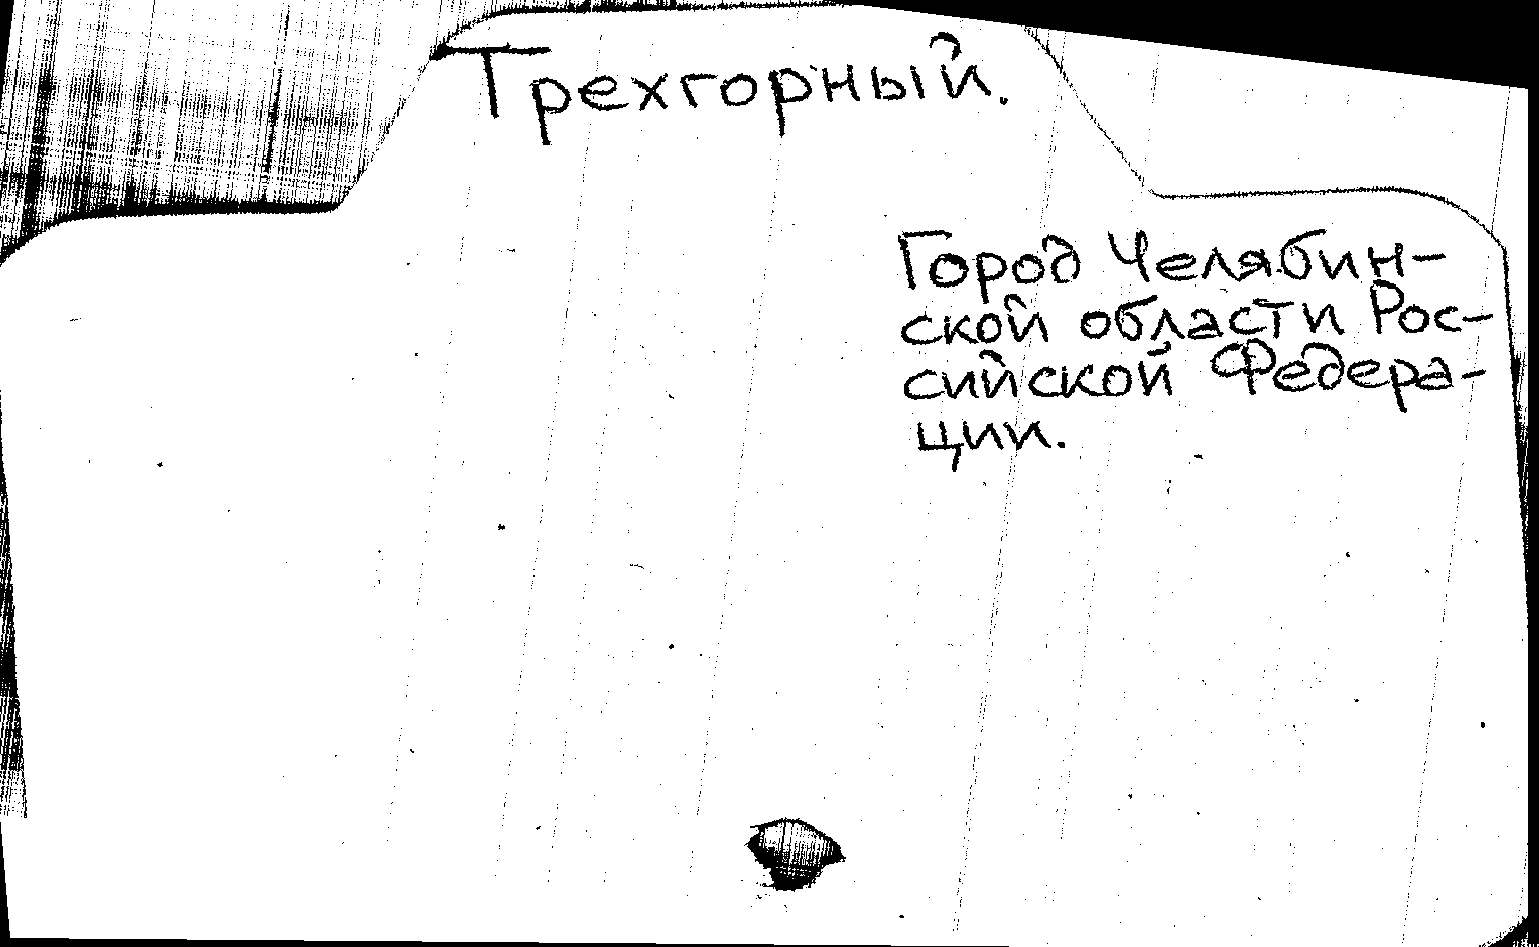 Трехгорный.
Город Челябин-
ской области Рос-
сийской Федера-
ции.